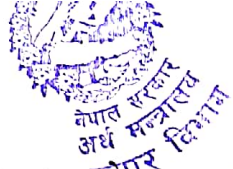 नेपाल सरकार
अर्थ मन्त्रालय
विभाग